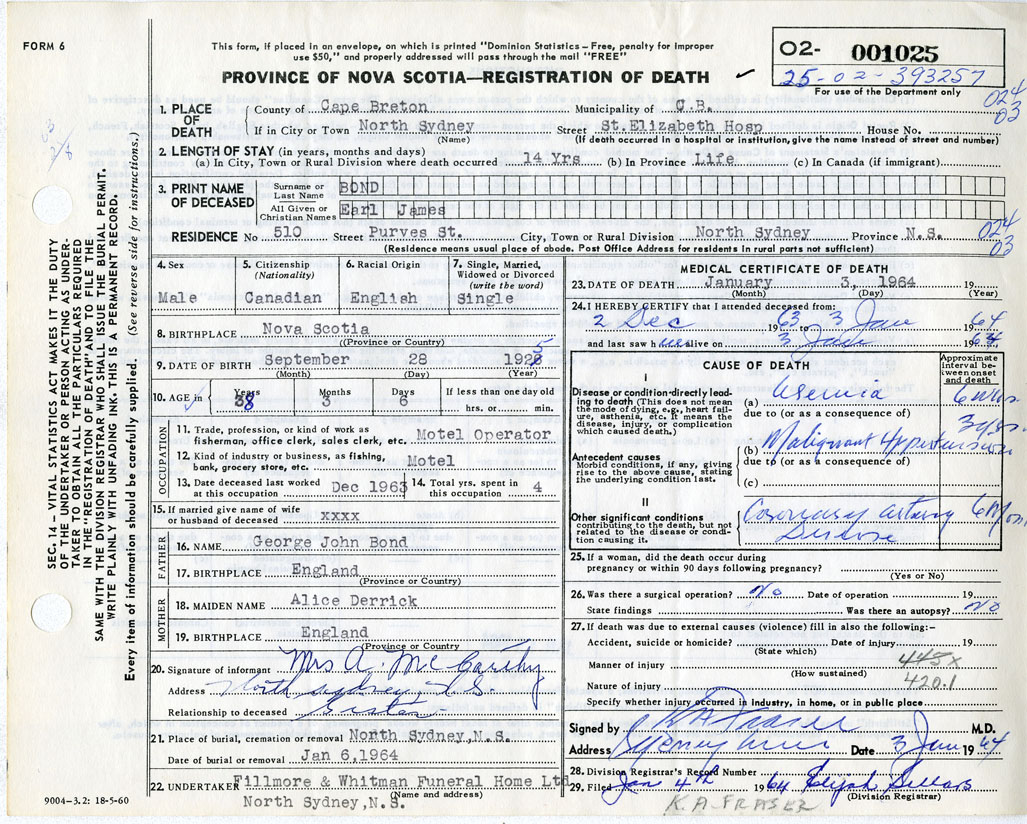 FORM 6
This form, if placed in an envelope, on which is printed "Dominion Statistics – Free, penalty for improper
use $50," and properly addressed will pass through the mail "FREE"
PROVINCE OF NOVA SCOTIA—REGISTRATION OF DEATH ✓
O2- 001025
25-02-393257
For use of the Department only
024
03
1. PLACE OF DEATH
County of Cape Breton Municipality of C.B.
If in City or Town North Sydney Street St.Elizabeth Hosp House No.
(Name) (If death occurred in a hospital or institution, give the name instead of street and number)
2. LENGTH OF STAY (in years, months and days)
(a) In City, Town or Rural Division where death occurred 14 Yrs (b) In Province Life (c) In Canada (if immigrant)
3. PRINT NAME OF DECEASED
Surname or Last Name BOND
All Given or Christian Names Earl James
RESIDENCE No 510 Street Purves St. City, Town or Rural Division North Sydney Province N.S.
(Residence means usual place of abode. Post Office Address for residents in rural parts not sufficient)
024
03
4. Sex
Male
5. Citizenship
(Nationality)
Canadian
6. Racial Origin
English
7. Single, Married,
Widowed or Divorced
(write the word)
Single
8. BIRTHPLACE Nova Scotia
((Province or Country)
9. DATE OF BIRTH September 28 1925
(Month) (Day) (Year)
10. AGE in
Years 38
Months 3
Days 6
If less than one day old
hrs. or min.
OCCUPATION
11. Trade, profession, or kind of work as
fisherman, office clerk, sales clerk, etc. Motel Operator
12. Kind of industry or business, as fishing,
bank, grocery store, etc. Motel
13. Date deceased last worked
at this occupation Dec 1963
14. Total yrs. spent in
this occupation 4
15. If married give name of wife
or husband of deceased xxxx
FATHER
16. NAME George John Bond
17. BIRTHPLACE England
(Province or Country)
MOTHER
18. MAIDEN NAME Alice Derrick
19. BIRTHPLACE England
(Province or Country
20. Signature of informant Mrs A. McCarthy
Address North Sydney, N.S.
Relationship to deceased Sister
21. Place of burial, cremation or removal North Sydney,N.S.
Date of burial or removal Jan 6,1964
22. UNDERTAKER Fillmore & Whitman Funeral Home Ltd
(Name and address)
North Sydney,N.S.
9004-3.2: 18-5-60
MEDICAL CERTIFICATE OF DEATH
23. DATE OF DEATH January 3, 1964 19
(Month) (Day) (Year)
24. I HEREBY CERTIFY that I attended deceased from:
2 Dec 1963 to 3 Jan 1964
and last saw h alive on 3 Jan 1964
CAUSE OF DEATH
Approximate
interval be-
tween onset
and death
I
Disease or condition directly lead-
ing to death (This does not mean
the mode of dying, e.g., heart fail-
ure, asthenia, etc. It means the
disease, injury, or complication
which caused death.)
(a) Uremia 6 wks
due to (or as a consequence of)
Antecedent causes
Morbid conditions, if any, giving
rise to the above cause, stating
the underlying condition last.
(b) Malignant Hypertension 3 yrs.
due to (or as a consequence of)
(c)
II
Other significant conditions
contributing to the death, but not
related to the disease or condi-
tion causing it.
Coronary artery 6 mon
Disease
25. If a woman, did the death occur during
pregnancy or within 90 days following pregnancy?
(Yes or No)
26. Was there a surgical operation? No Date of operation 19
State findings Was there an autopsy? No
27. If death was due to external causes (violence) fill in also the following:-
Accident, suicide or homicide? Date of injury 19
(State which)
Manner of injury 445x
(How sustained)
Nature of injury 420.1
Specify whether injury occurred in Industry, in home, or in public place
Signed by K A Fraser M.D.
Address Sydney Mines Date 3 Jan 1964
28. Division Registrar's Record Number
29. Filed Jan 4th 1964 Elijah Sellars
(Division Registrar)
K.A. FRASER
SEC. 14 – VITAL STATISTICS ACT MAKES IT THE DUTY
OF THE UNDERTAKER OR PERSON ACTING AS UNDER-
TAKER TO OBTAIN ALL THE PARTICULARS REQUIRED
IN THE "REGISTRATION OF DEATH" AND TO FILE THE
SAME WITH THE DIVISION REGISTRAR WHO SHALL ISSUE THE BURIAL PERMIT.
WRITE PLAINLY WITH UNFADING INK. THIS IS A PERMANENT RECORD.
Every item of information should be carefully supplied. (See reverse side for instructions.)